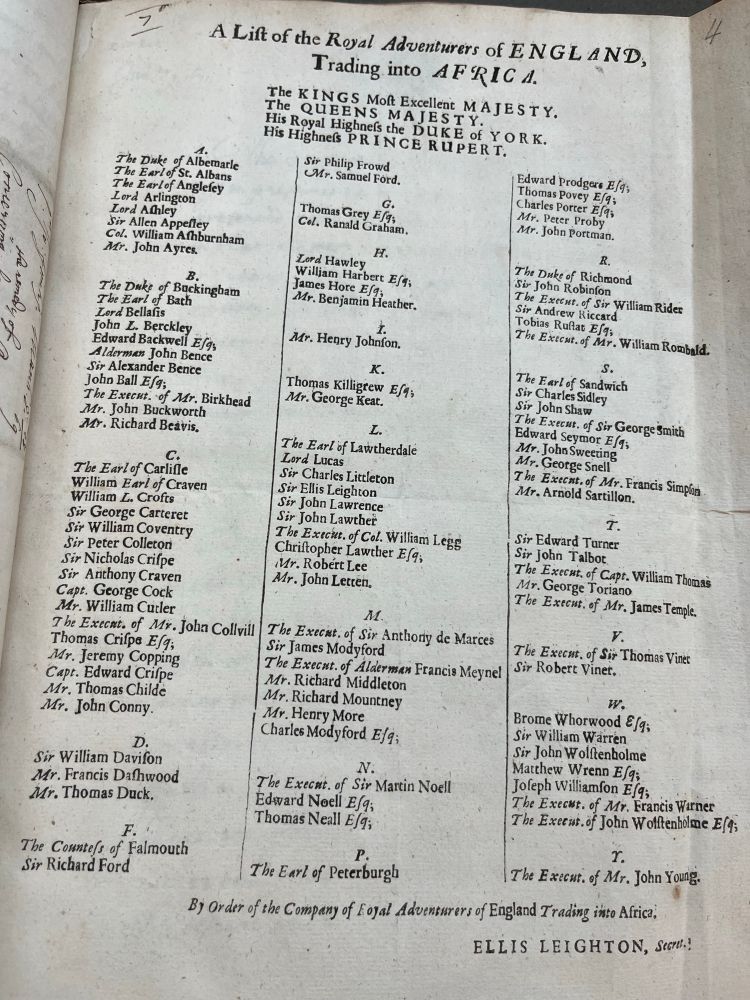 4
A Liſt of the Royal Adventurers of ENGLAND,
Trading into AFRICA.
The KINGS Moſt Excellent MAJESTY.
The QUEENS MAJESTY.
His Royal Highneſs the DUKE of YORK.
His Highneſs PRINCE RUPERT.
A.
The Duke of Albemarle
The Earl of St. Albans
The Earl of Angleſey
Lord Arlington
Lord Aſhley
Sir Allen Appeſley
Col. William Aſhburnham
Mr. John Ayres.
B.
The Duke of Buckingham
The Earl of Bath
Lord Bellaſis
John L. Berckley
Edward Backwell Eſq;
Alderman John Bence
Sir Alexander Bence
John Ball Eſq;
The Execut. of Mr. Birkhead
Mr. John Buckworth
Mr. Richard Beavis.
C.
The Earl of Carliſle
William Earl of Craven
William L. Crofts
Sir George Carteret
Sir William Coventry
Sir Peter Colleton
Sir Nicholas Criſpe
Sir Anthony Craven
Capt. George Cock
Mr. William Cutler
The Execut. of Mr. John Collvill
Thomas Criſpe Eſq;
Mr. Jeremy Copping
Capt. Edward Criſpe
Mr. Thomas Childe
Mr. John Conny.
D.
Sir William Daviſon
Mr. Francis Daſhwood
Mr. Thomas Duck.
F.
The Counteſs of Falmouth
Sir Richard Ford
Sir Philip Frowd
Mr. Samuel Ford.
G.
Thomas Grey Eſq;
Col. Ranald Graham.
H.
Lord Hawley
William Harbert Eſq;
James Hore Eſq;
Mr. Benjamin Heather.
I.
Mr. Henry Johnſon.
K.
Thomas Killigrew Eſq;
Mr. George Keat.
L.
The Earl of Lawtherdale
Lord Lucas
Sir Charles Littleton
Sir Ellis Leighton
Sir John Lawrence
Sir John Lawther
The Execut. of Col. William Legg
Chriſtopher Lawther Eſq;
Mr. Robert Lee
Mr. John Letten.
M.
The Execut. of Sir Anthony de Marces
Sir James Modyford
The Execut. of Alderman Francis Meynel
Mr. Richard Middleton
Mr. Richard Mountney
Mr. Henry More
Charles Modyford Eſq;
N.
The Execut. of Sir Martin Noell
Edward Noell Eſq;
Thomas Neall Eſq;
P.
The Earl of Peterburgh
Edward Prodgers Eſq;
Thomas Povey Eſq;
Charles Porter Eſq;
Mr. Peter Proby
Mr. John Portman.
R.
The Duke of Richmond
Sir John Robinſon
The Execut. of Sir William Rider
Sir Andrew Riccard
Tobias Ruſtat Eſq;
The Execut. of Mr. William Rombald.
S.
The Earl of Sandwich
Sir Charles Sidley
Sir John Shaw
The Execut. of Sir George Smith
Edward Seymor Eſq;
Mr. John Sweeting
Mr. George Snell
The Execut. of Mr. Francis Simpſon
Mr. Arnold Sartillon.
T.
Sir Edward Turner
Sir John Talbot
The Execut. of Capt. William Thomas
Mr. George Toriano
The Execut. of Mr. James Temple.
V.
The Execut. of Sir Thomas Viner
Sir Robert Viner.
W.
Brome Whorwood Eſq;
Sir William Warren
Sir John Wolſtenholme
Matthew Wrenn Eſq;
Joſeph Williamſon Eſq;
The Execut. of Mr. Francis Warner
The Execut. of John Wolſtenholme Eſq;
Y.
The Execut. of Mr. John Young.
By Order of the Company of Royal Adventurers of England Trading into Africa.
ELLIS LEIGHTON, Secret.